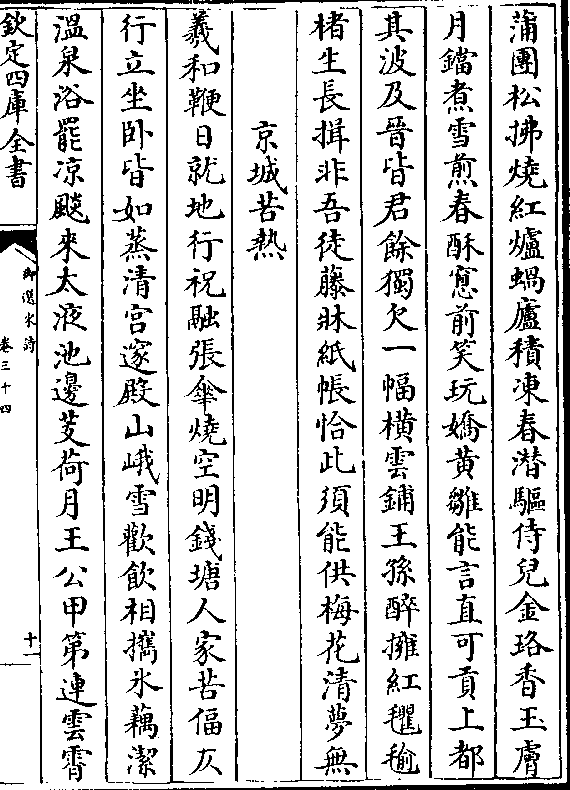 蒲團松拂燒紅爐蝸廬積凍春潜驅侍兒金珞香玉膚
月鐺煮雪煎春酥窻前笑玩嬌黄雛能言直可貢上都
其波及晉皆君餘獨欠一幅横雲鋪王孫醉擁紅氍毹
楮生長揖非吾徒藤牀紙帳恰此須能供梅花清夢無
京城苦熱
羲和鞭日就地行祝融張傘燒空明錢塘人家苦偪仄
行立坐卧皆如蒸清宫邃殿山峨雪歡飲相攜氷藕潔
温泉浴罷凉颸來太液池邊芰荷月王公甲第連雲霄
欽定四庫全書
御選宋詩
卷三十四
十一